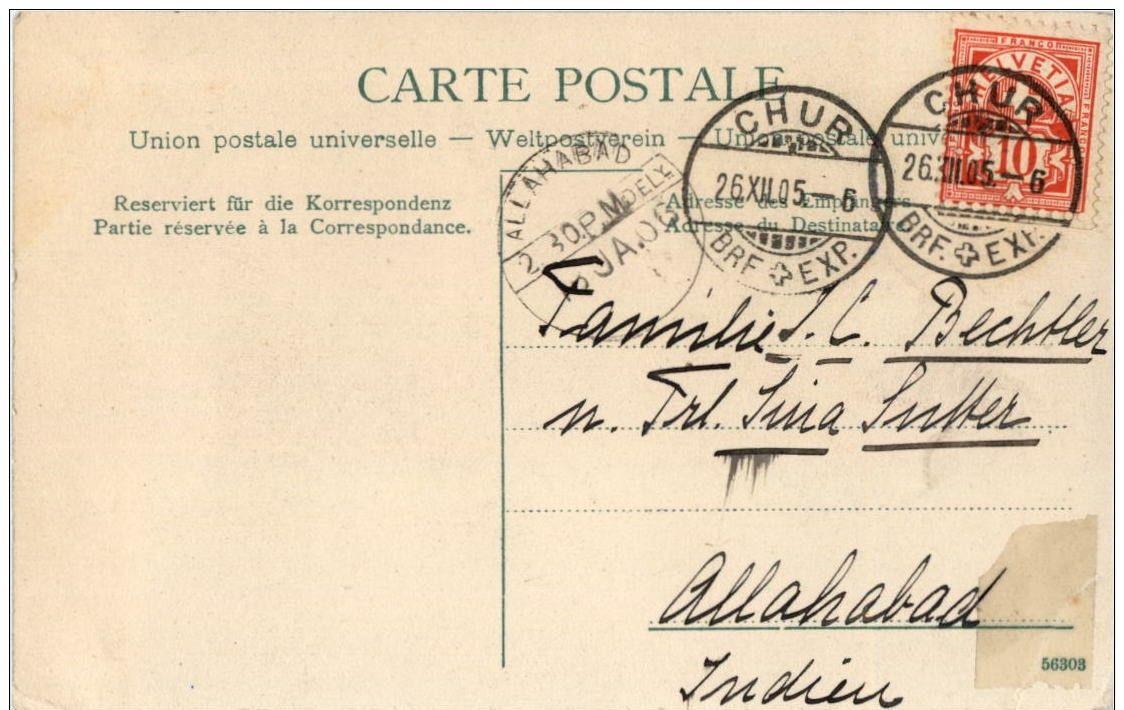 CARTE POSTALE
Union postale universelle — Weltpostverein — Union postale unive
Reserviert für die Korrespondenz
Partie réservée à la Correspondance.
Adresse des Empfängers
Adresse du Destinataire
FRANCO
HELVETIA
FRANCO
10
CHUR
26.XII.05.—6
BRF. EXP.
CHUR
26.XII.05.—6
BRF. EXP.
ALLAHABAD
2.30.P.M. DELY.
JA.06
Familie J. C. Bechtler
u. Frl. Sina Sutter
Allahabad
Indien
56303